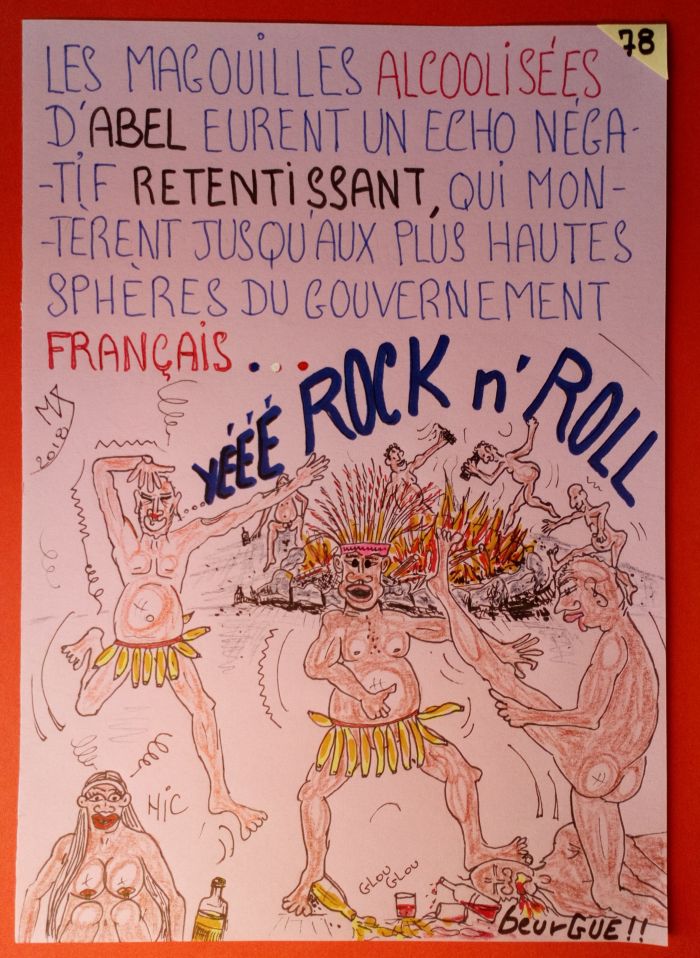 78
LES MAGOUILLES ALCOOLISÉES
D'ABEL EURENT UN ECHO NÉGA-
-TIF RETENTISSANT, QUI MON-
-TÈRENT JUSQU'AUX PLUS HAUTES
SPHÈRES DU GOUVERNEMENT
FRANÇAIS...
2018
YÉÉÉ ROCK n' ROLL
HIC
GLOU
GLOU
beurGUE!!